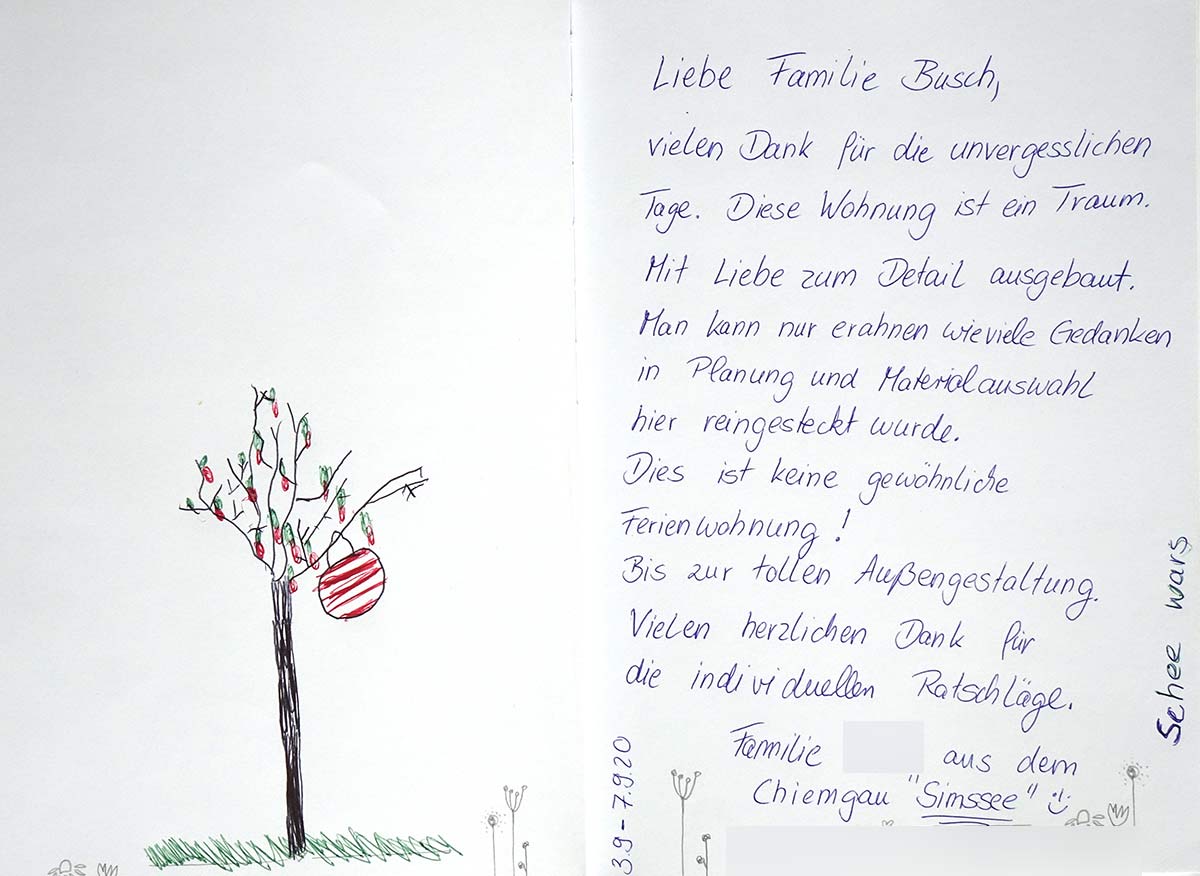 Liebe Familie Busch,
vielen Dank für die unvergesslichen
Tage. Diese Wohnung ist ein Traum.
Mit Liebe zum Detail ausgebaut.
Man kann nur erahnen wieviele Gedanken
in Planung und Materialauswahl
hier reingesteckt wurde.
Dies ist keine gewöhnliche
Ferienwohnung!
Bis zur tollen Außengestaltung.
Vielen herzlichen Dank für
die individuellen Ratschläge.
Familie aus dem
Chiemgau "Simssee"
3.9-7.9.20
Schee wars